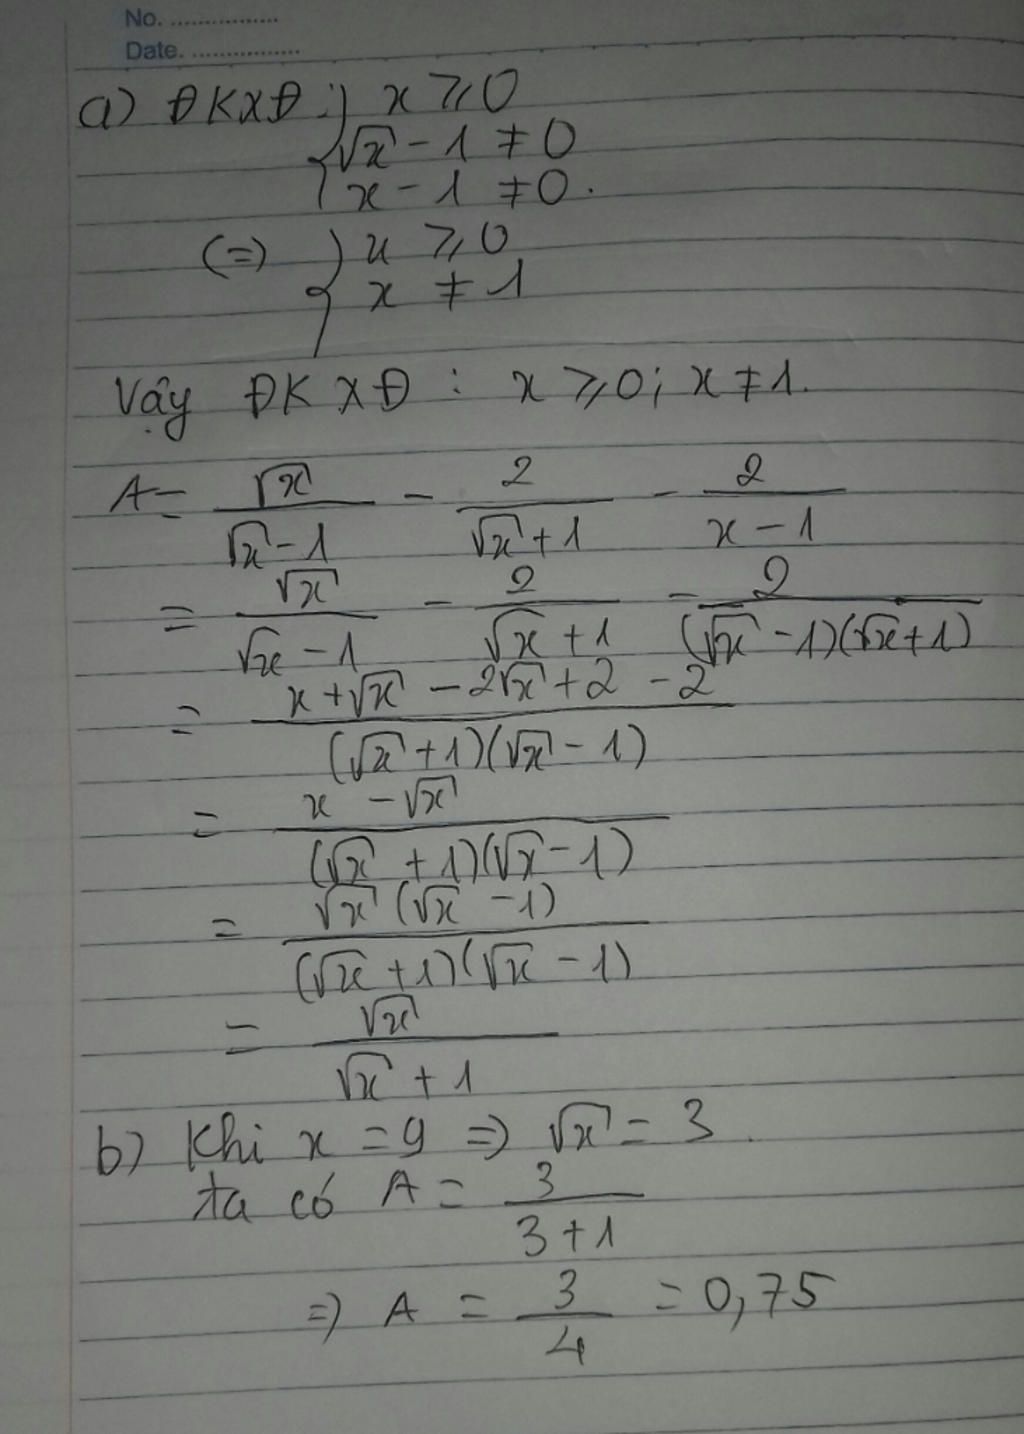 No. ................
Date. ................
a) ĐKXĐ : { x ⩾ 0
√x - 1 ≠ 0
x - 1 ≠ 0.
(=) { x ⩾ 0
x ≠ 1
Vậy ĐKXĐ : x ⩾ 0; x ≠ 1.
A = √x/(√x - 1) - 2/(√x + 1) - 2/(x - 1)
= √x/(√x - 1) - 2/(√x + 1) - 2/((√x - 1)(√x + 1))
= (x + √x - 2√x + 2 - 2)/((√x + 1)(√x - 1))
= (x - √x)/((√x + 1)(√x - 1))
= √x (√x - 1)/((√x + 1)(√x - 1))
= √x/(√x + 1)
b) Khi x = 9 => √x = 3.
ta có A = 3/(3 + 1)
=> A = 3/4 = 0,75